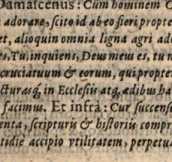 Damascenus: Cum hominem &
adorare, scito id ab eo fieri propte
et, alioquin omnia ligna agri ade
es, Tu, inquiens, Deus meus es, tu m
cruciatuum & eorum, qui propter
cturasq́, in Ecclesiis atq́, ædibus ha
facimus. Et infrà: Cur succense
enta, scripturis & historiis compr
tidie accipio vtilitatem, perpetu